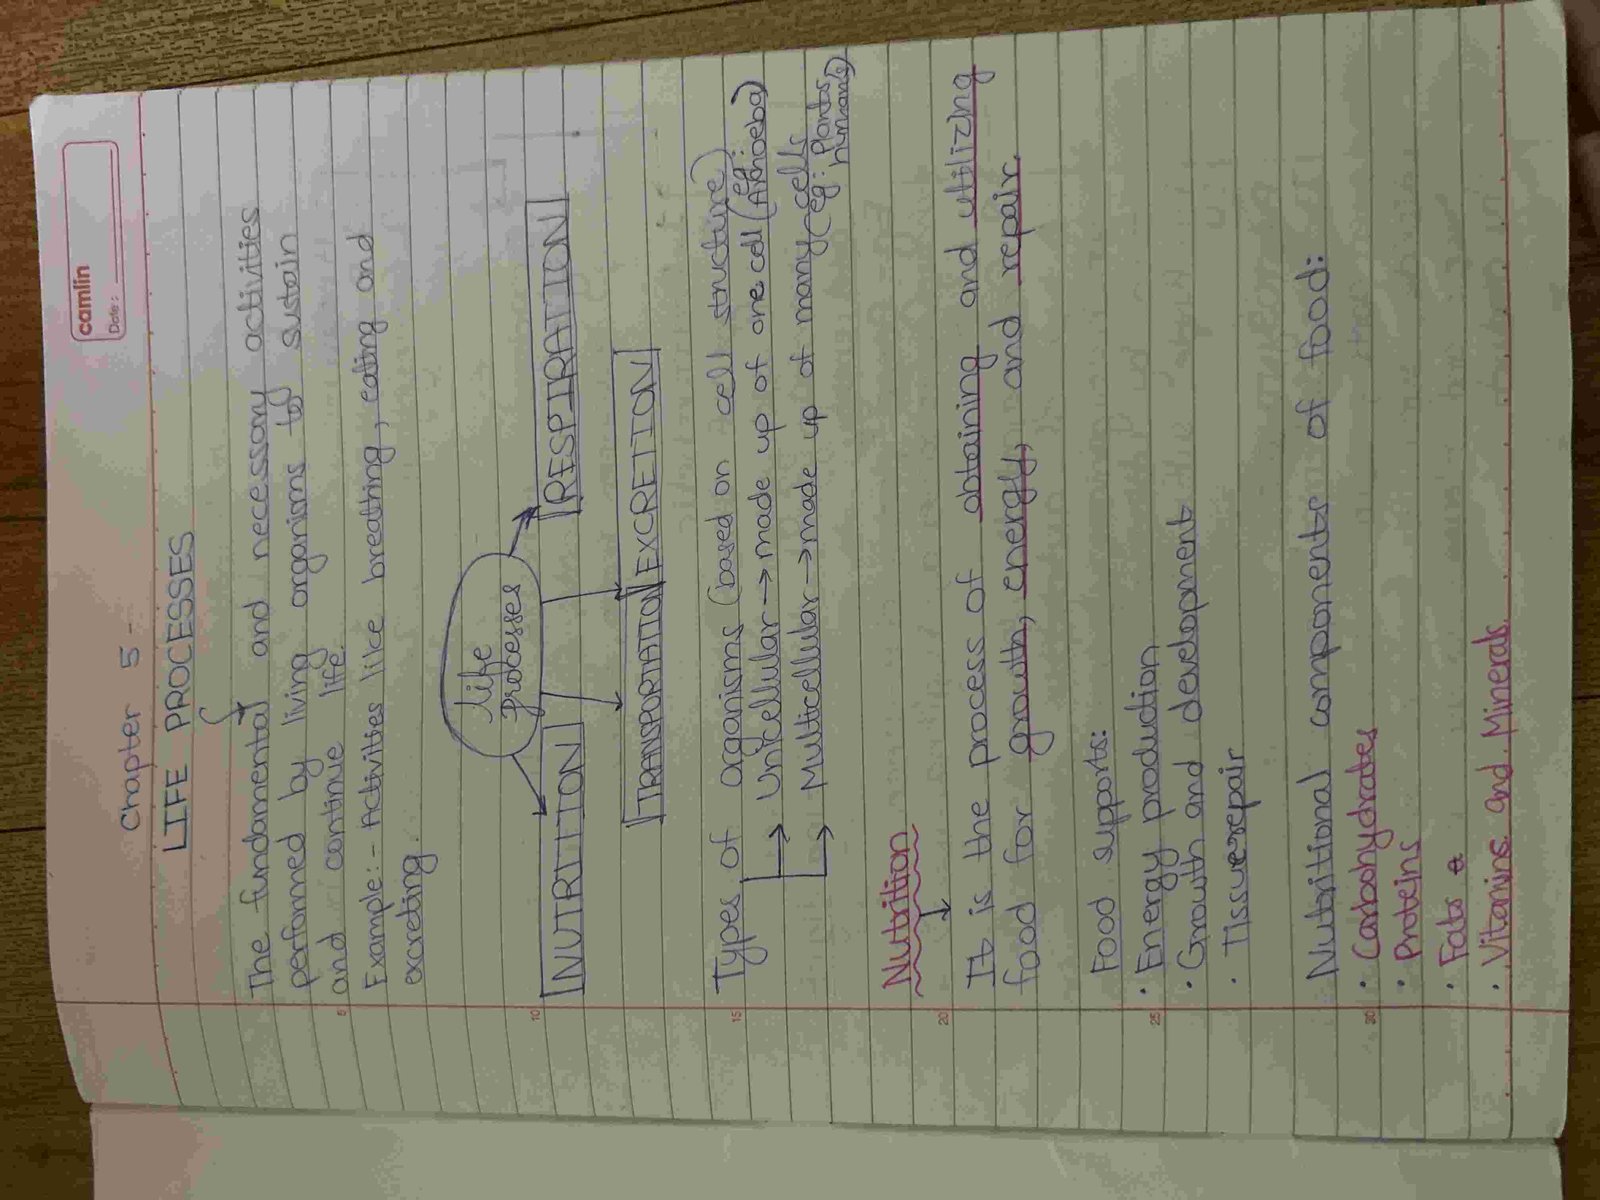 camlin
Date:
Chapter 5 -
LIFE PROCESSES
The fundamental and necessary activities
performed by living organisms to sustain
and continue life.
Example:- Activities like breathing, eating and
excreting.
Life
processes
NUTRITION
RESPIRATION
TRANSPORTATION
EXCRETION
Types of organisms (based on cell structure)
Unicellular → made up of one cell (eg: Amoeba)
Multicellular → made up of many cells (eg: Plants, humans)
Nutrition
It is the process of obtaining and utilizing
food for growth, energy, and repair.
Food supports:
· Energy production
· Growth and development
· Tissue repair
Nutritional components of food:
· Carbohydrates
· Proteins
· Fats
· Vitamins and Minerals.
5
10
15
20
25
30